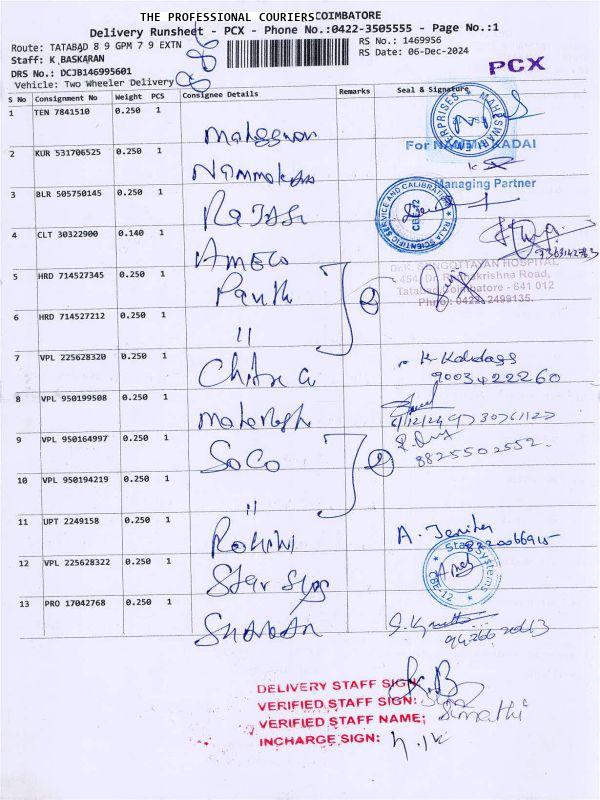 THE PROFESSIONAL COURIERS COIMBATORE
Delivery Runsheet - PCX - Phone No.:0422-3505555 - Page No.:1
Route: TATABAD 8 9 GPM 7 9 EXTN
RS No.: 1469956
Staff: K BASKARAN
RS Date: 06-Dec-2024
DRS No.: DCJB146995601
PCX
Vehicle: Two Wheeler Delivery
S No Consignment No Weight PCS Consignee Details Remarks Seal & Signature
1 TEN 7841510 0.250 1
ENTERPRISES * MAHESWARI
For NAMMA KADAI
2 KUR 531706525 0.250 1
Managing Partner
3 BLR 505750145 0.250 1 Rajasri
RAJA SCIENTIFIC SERVICE AND CALIBRATION
CBE-12
4 CLT 30322900 0.140 1 AMECO
HOSPITAL
454, Dr. Rajakrishna Road,
Tatabad, Coimbatore - 641 012
Phno: 0422 2499135.
5 HRD 714527345 0.250 1 2
6 HRD 714527212 0.250 1 "
7 VPL 225628320 0.250 1 Chitra G
9003422260
8 VPL 950199508 0.250 1
6/12/24
9 VPL 950164997 0.250 1 SoCo 2
8825502552
10 VPL 950194219 0.250 1 "
11 UPT 2249158 0.250 1 Rohini
A. Jenifer
12 VPL 225628322 0.250 1 Star Sys
Star Systems
CBE-12
13 PRO 17042768 0.250 1
DELIVERY STAFF SIGN: K.B
VERIFIED STAFF SIGN:
VERIFIED STAFF NAME; Simathi
INCHARGE SIGN: